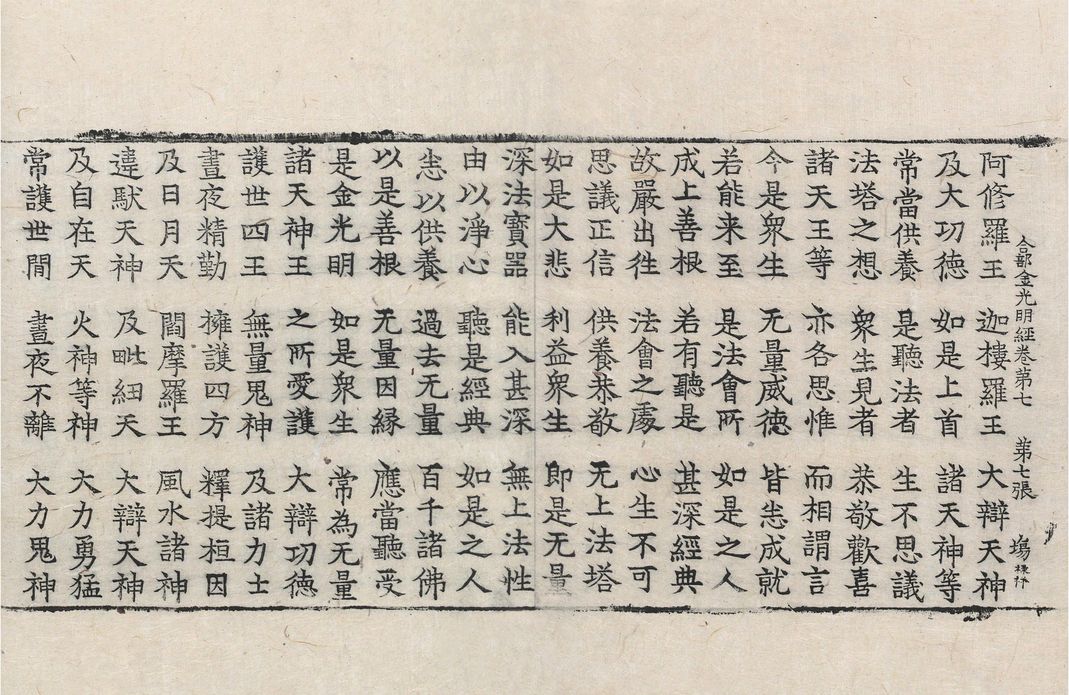 合部金光明經卷第七 第七張 場
阿修羅王 迦樓羅王 大辯天神
及大功德 如是上首 諸天神等
常當供養 是聽法者 生不思議
法塔之想 衆生見者 恭敬歡喜
諸天王等 亦各思惟 而相謂言
今是衆生 无量威德 皆悉成就
若能来至 是法會所 如是之人
成上善根 若有聽是 甚深經典
故嚴出往 法會之處 心生不可
思議正信 供養恭敬 无上法塔
如是大悲 利益衆生 即是无量
深法寶器 能入甚深 無上法性
由以淨心 聽是經典 如是之人
悉以供養 過去无量 百千諸佛
以是善根 无量因緣 應當聽受
是金光明 如是衆生 常為无量
諸天神王 之所愛護 大辯功德
護世四王 無量鬼神 及諸力士
晝夜精勤 擁護四方 釋提桓因
及日月天 閻摩羅王 風水諸神
違馱天神 及毗紐天 大辯天神
及自在天 火神等神 大力勇猛
常護世間 晝夜不離 大力鬼神